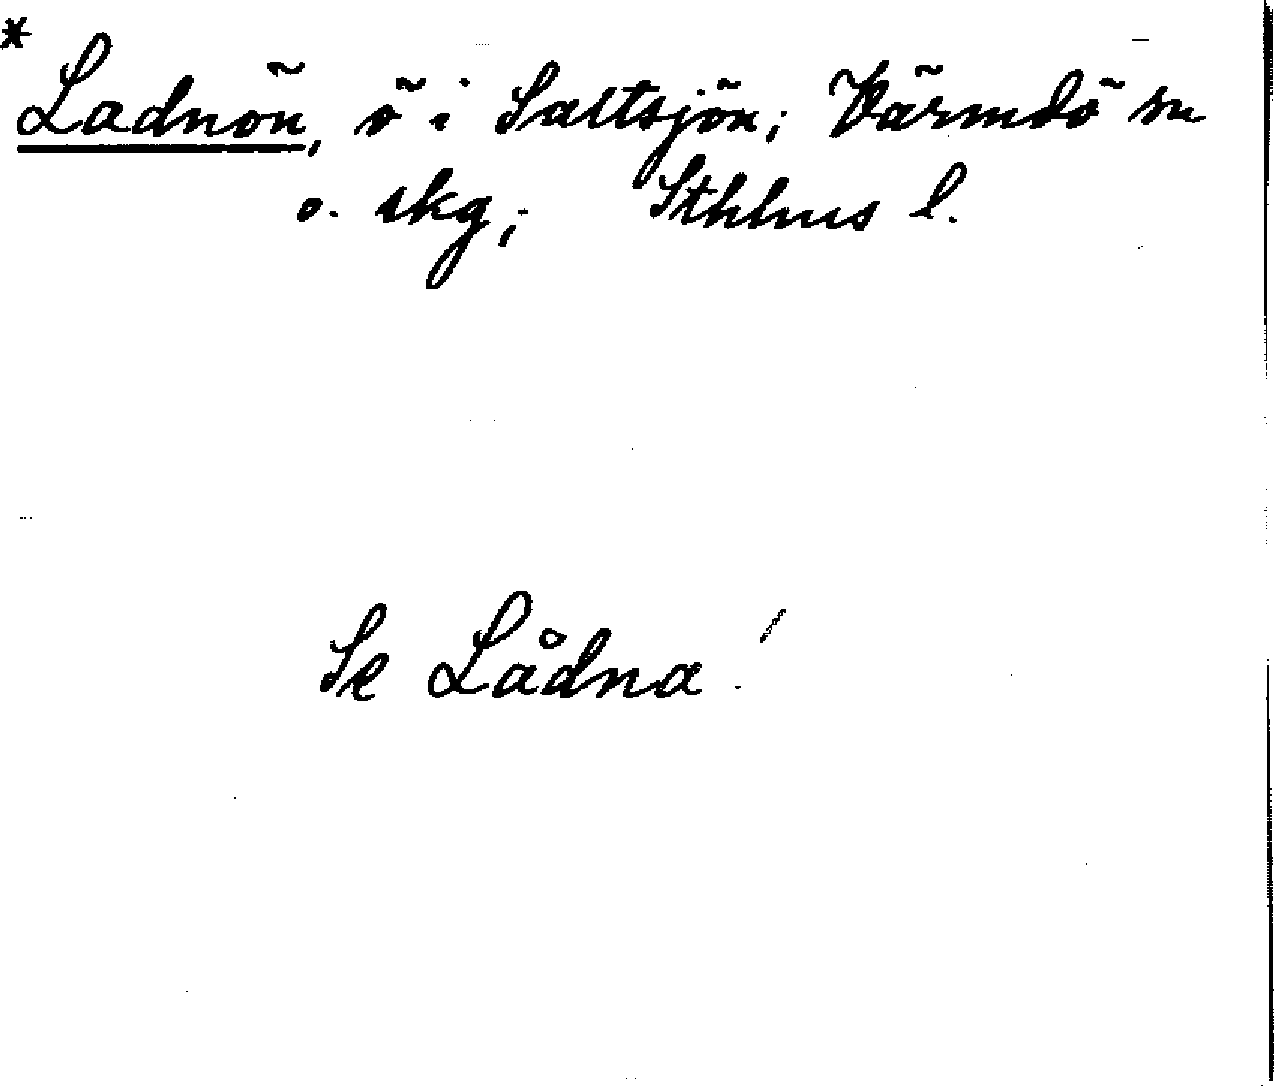 * Ladnön, ö i Saltsjön; Värmdö sn
o. skg; Sthlms l.
Se Lådna!